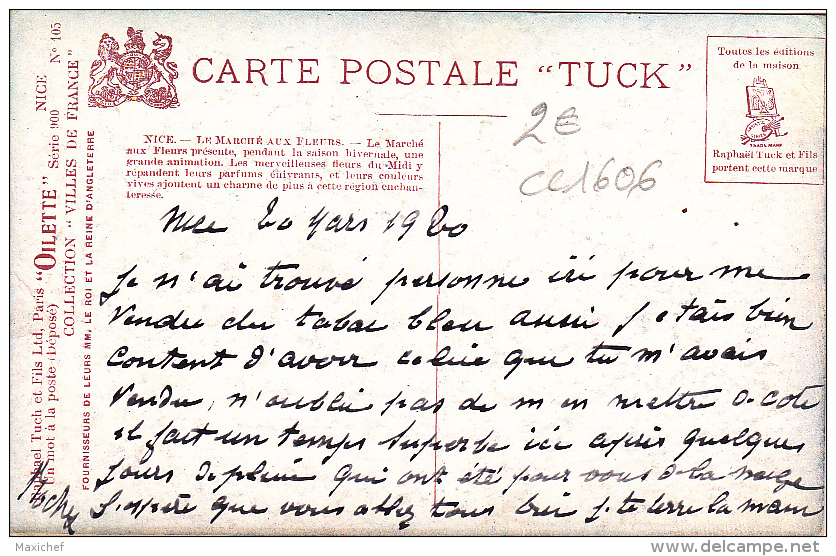 CARTE POSTALE "TUCK"
Toutes les éditions
de la maison
TRADE MARK
Raphaël Tuck et Fils
portent cette marque
NICE. — LE MARCHÉ AUX FLEURS. — Le Marché
aux Fleurs présente, pendant la saison hivernale, une
grande animation. Les merveilleuses fleurs du Midi y
répandent leurs parfums énivrants, et leurs couleurs
vives ajoutent un charme de plus à cette région enchan-
teresse.
2€
CC1606
Raphael Tuck et Fils Ltd, Paris "OILETTE" Série 900 NICE N° 105
Un mot à la poste (Déposé) COLLECTION "VILLES DE FRANCE"
FOURNISSEURS DE LEURS MM. LE ROI ET LA REINE D'ANGLETERRE
Nice 20 Mars 1920
Je n'ai trouvé personne ici pour me
vendre du tabac bleu aussi j'etais bien
content d'avoir celui que tu m'avais
vendu, n'oublie pas de m'en mettre de cote
il fait un temps superbe ici apres quelques
jours de pluie qui ont été pour vous de la neige
J'espère que vous allez tous bien je te serre la main
Maxichef
www.delcampe.net